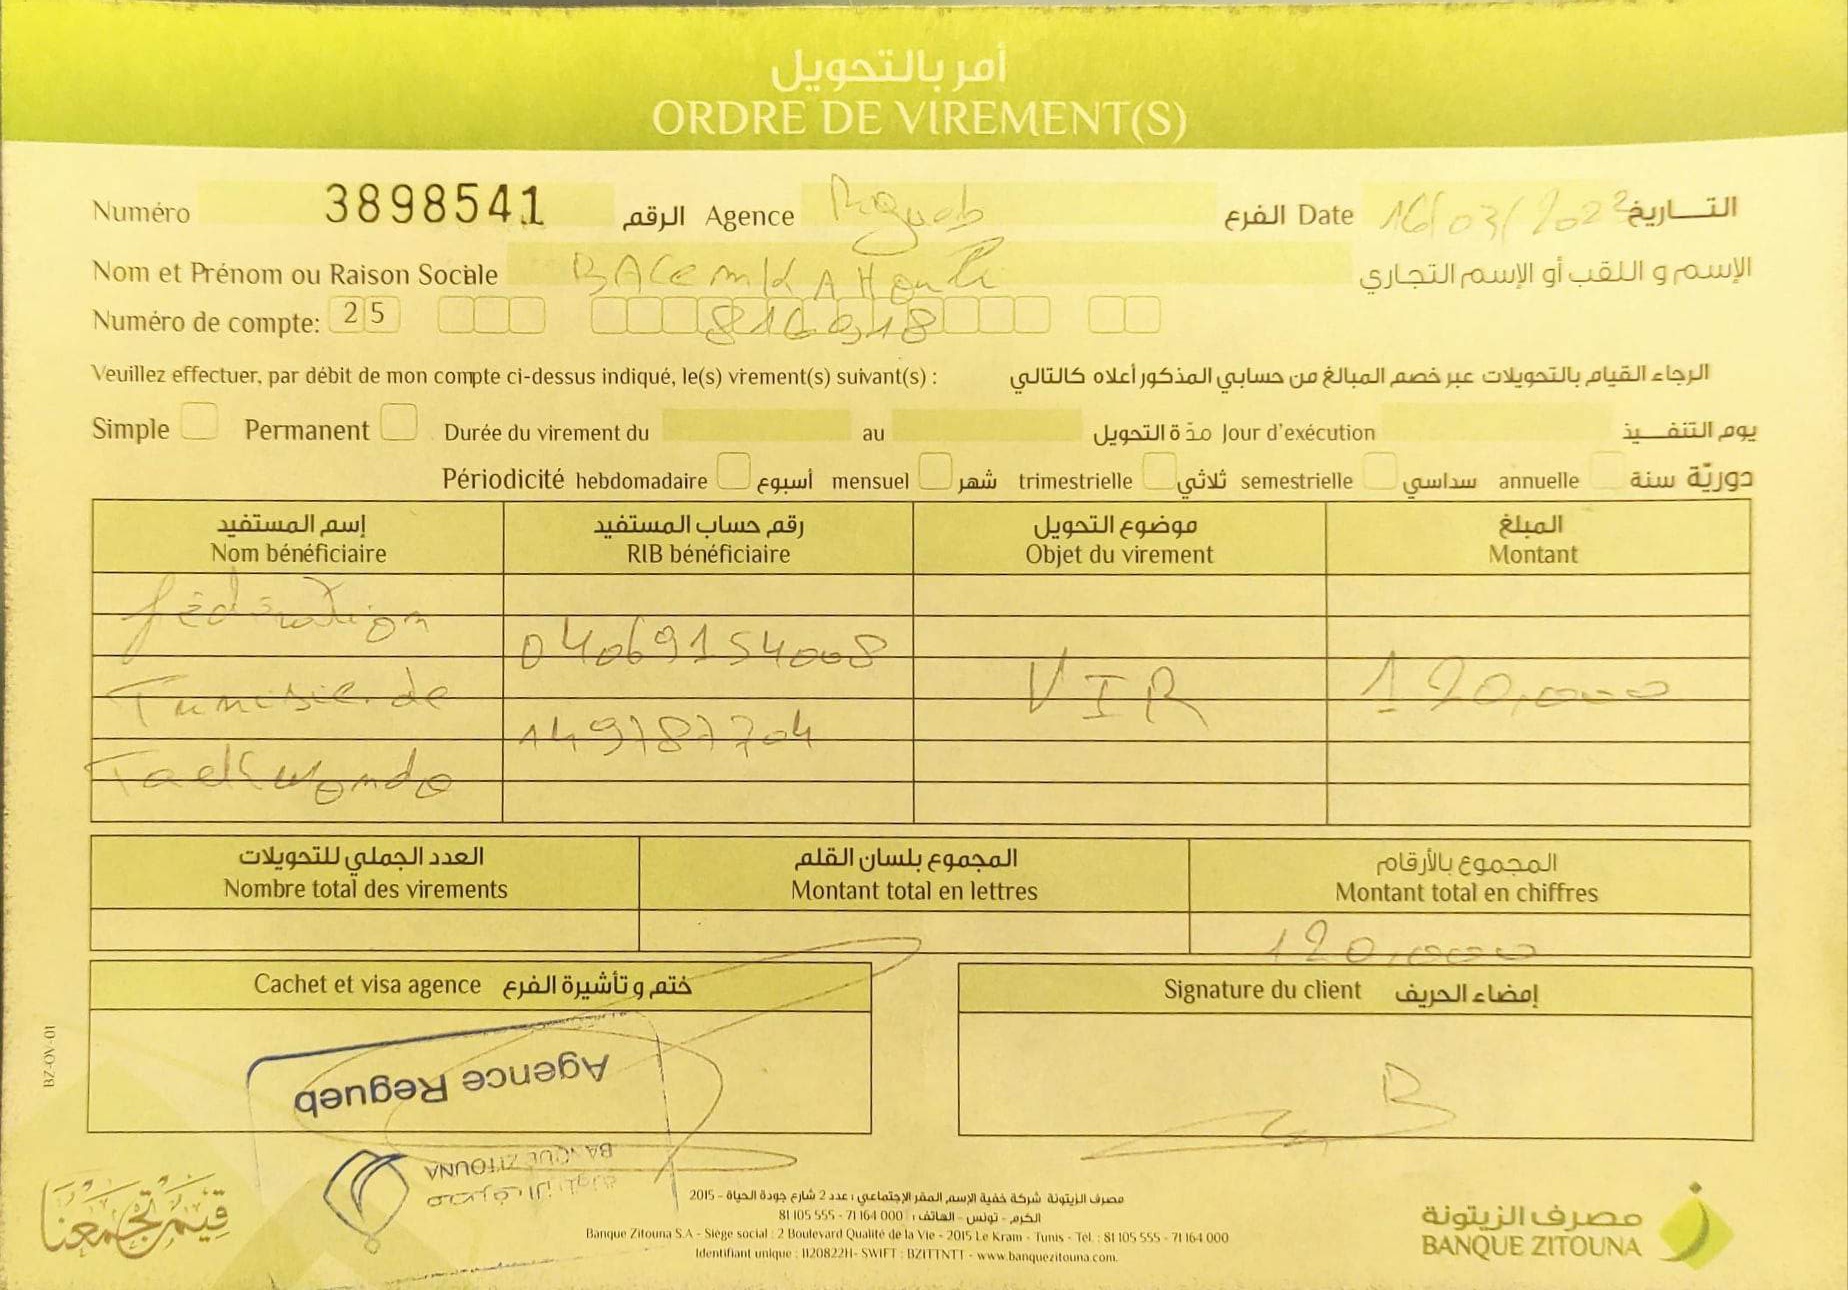 أمر بالتحويل
ORDRE DE VIREMENT(S)
Numéro 3898541 الرقم Agence Regueb الفرع Date 16/03/2022 التاريخ
Nom et Prénom ou Raison Sociale BACEM الإسم و اللقب أو الإسم التجاري
Numéro de compte: 25 816918
Veuillez effectuer, par débit de mon compte ci-dessus indiqué, le(s) virement(s) suivant(s) : الرجاء القيام بالتحويلات عبر خصم المبالغ من حسابي المذكور أعلاه كالتالي
Simple Permanent Durée du virement du au مدّة التحويل Jour d'exécution يوم التنفيذ
Périodicité hebdomadaire أسبوع mensuel شهر trimestrielle ثلاثي semestrielle سداسي annuelle سنة دوريّة
إسم المستفيد رقم حساب المستفيد موضوع التحويل المبلغ
Nom bénéficiaire RIB bénéficiaire Objet du virement Montant
fédération
04069154008
Tunisie de VIR 120,000
149787704
Taekwondo
العدد الجملي للتحويلات المجموع بلسان القلم المجموع بالأرقام
Nombre total des virements Montant total en lettres Montant total en chiffres
120,000
Cachet et visa agence ختم و تأشيرة الفرع Signature du client إمضاء الحريف
Agence Regueb
B
BANQUE ZITOUNA
مصرف الزيتونة
BZ-OV-01
قيم تجمعنا
مصرف الزيتونة شركة خفية الإسم المقر الإجتماعي : عدد 2 شارع جودة الحياة - 2015
الكرم - تونس - الهاتف : 71 164 000 - 81 105 555
Banque Zitouna S.A - Siège social : 2 Boulevard Qualité de la Vie - 2015 Le Kram - Tunis - Tél. : 81 105 555 - 71 164 000
Identifiant unique : 1120822H- SWIFT : BZITTNTT - www.banquezitouna.com.
مصرف الزيتونة
BANQUE ZITOUNA